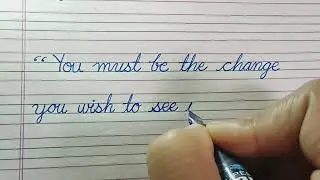 “ You must be the change
you wish to see